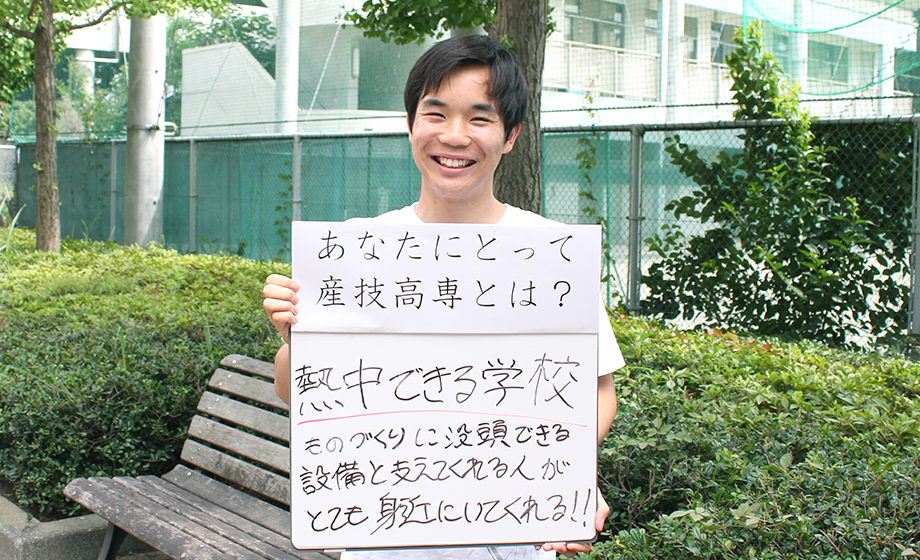 あなたにとって
産技高専とは？
熱中できる学校
ものづくりに没頭できる
設備と支えてくれる人が
とても身近にいてくれる!!